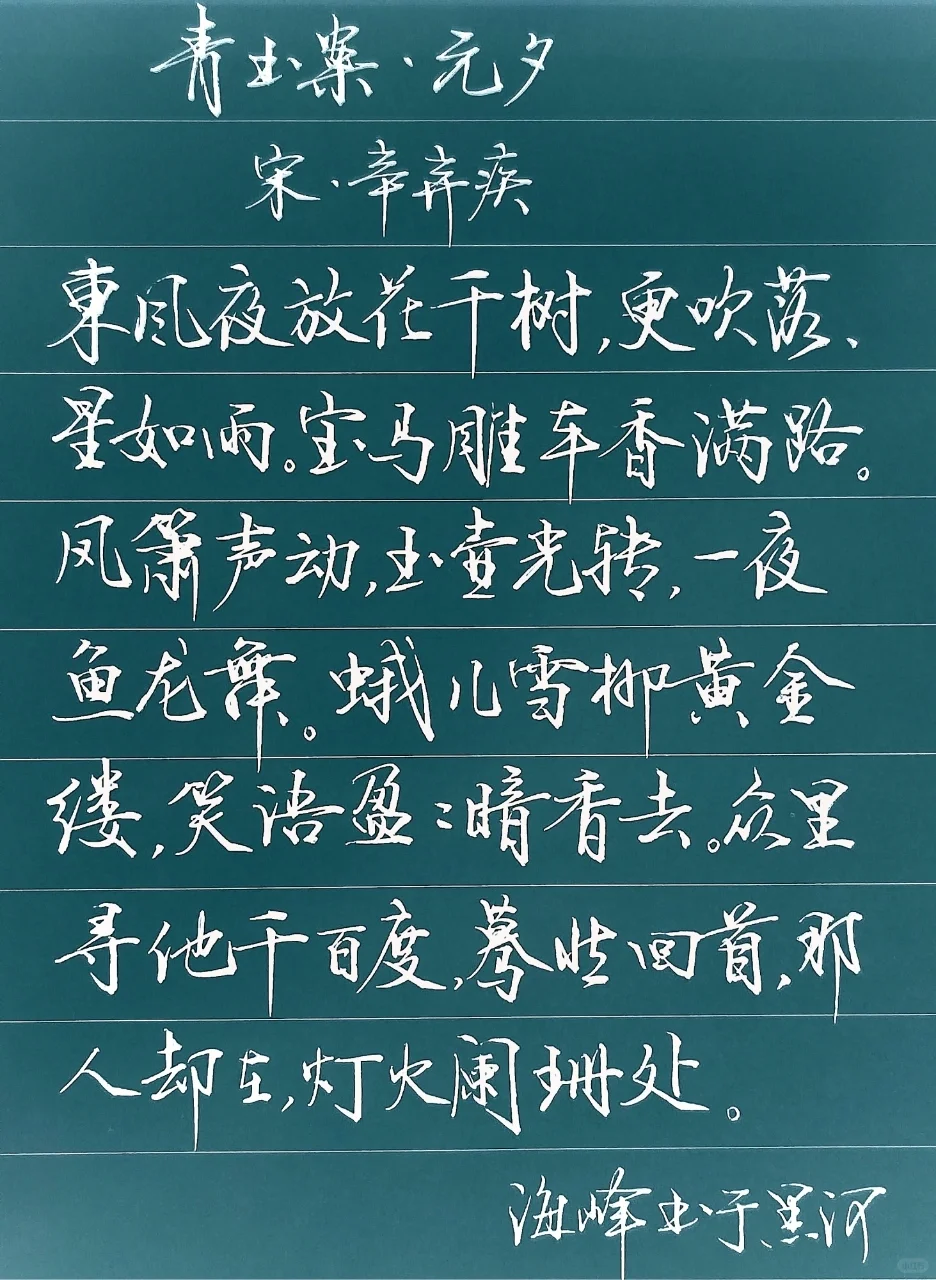 青玉案·元夕
宋·辛弃疾
東风夜放花千树,更吹落、
星如雨。宝马雕车香满路。
凤箫声动,玉壶光转,一夜
鱼龙舞。蛾儿雪柳黄金
缕,笑语盈:暗香去。众里
寻他千百度,蓦然回首,那
人却在,灯火阑珊处。
海峰书于黑河